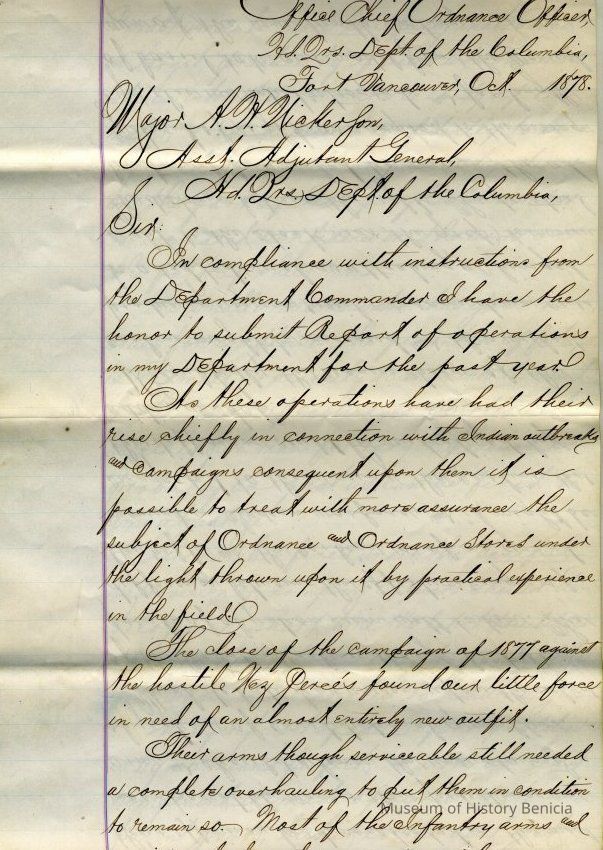 Office Chief Ordnance Officer,
Hd. Qrs. Dept. of the Columbia,
Fort Vancouver, Oct. 1878.
Major A. H. Nickerson,
Asst. Adjutant General,
Hd. Qrs. Dept. of the Columbia,
Sir:
In compliance with instructions from
the Department Commander I have the
honor to submit Report of operations
in my Department for the past year.
As these operations have had their
rise chiefly in connection with Indian outbreaks
and campaigns consequent upon them it is
possible to treat with more assurance the
subject of Ordnance and Ordnance Stores under
the light thrown upon it by practical experience
in the field.
The close of the campaign of 1877 against
the hostile Nez Percé's found our little force
in need of an almost entirely new outfit.
Their arms though serviceable still needed
a complete overhauling to put them in condition
to remain so. Most of the Infantry arms and
Museum of History Benicia